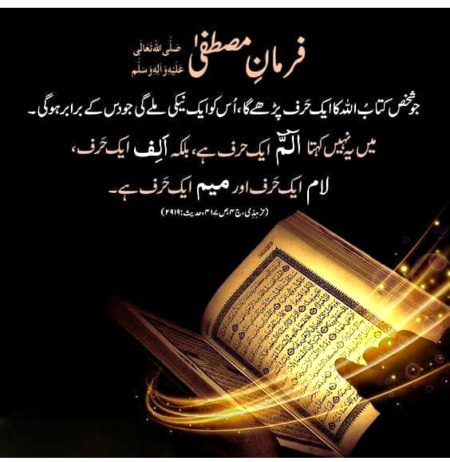 فرمانِ مصطفیٰ صَلَّی اللہُ تَعَالٰی عَلَیْہِ وَاٰلِہٖ وَسَلَّم
جو شخص کتابُ اللہ کا ایک حَرف پڑھے گا، اُس کو ایک نیکی ملے گی جو دس کے برابر ہوگی۔
میں یہ نہیں کہتا الٓمّٓ ایک حرف ہے، بلکہ اَلِف ایک حَرف،
لام ایک حَرف اور میم ایک حَرف ہے۔
(ترمذی، ج۴، ص۴۱۷، حدیث: ۲۹۱۹)